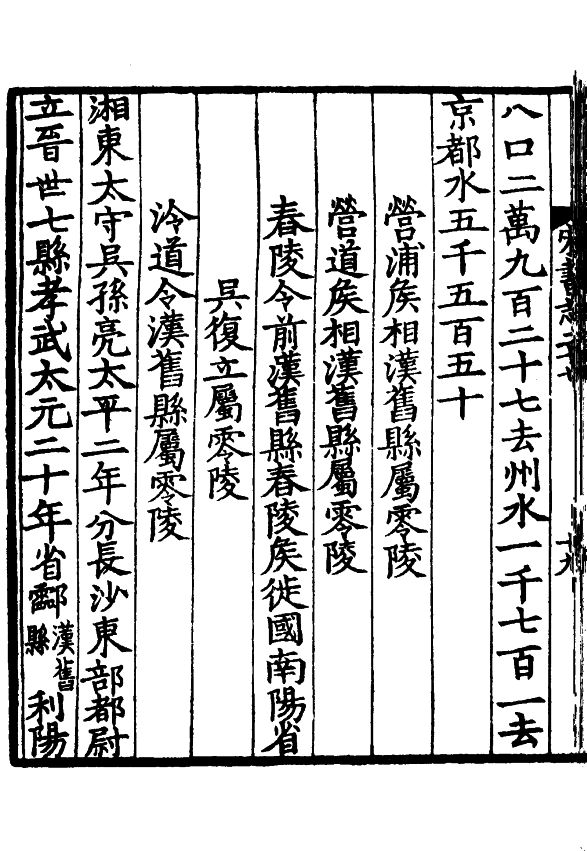 八口二萬九百二十七去州水一千七百一去
京都水五千五百五十
營浦矦相漢舊縣屬零陵
營道矦相漢舊縣屬零陵
舂陵令前漢舊縣舂陵矦徙國南陽省
吳復立屬零陵
泠道令漢舊縣屬零陵
湘東太守吳孫亮太平二年分長沙東部都尉
立晉世七縣孝武太元二十年省酃漢舊縣利陽